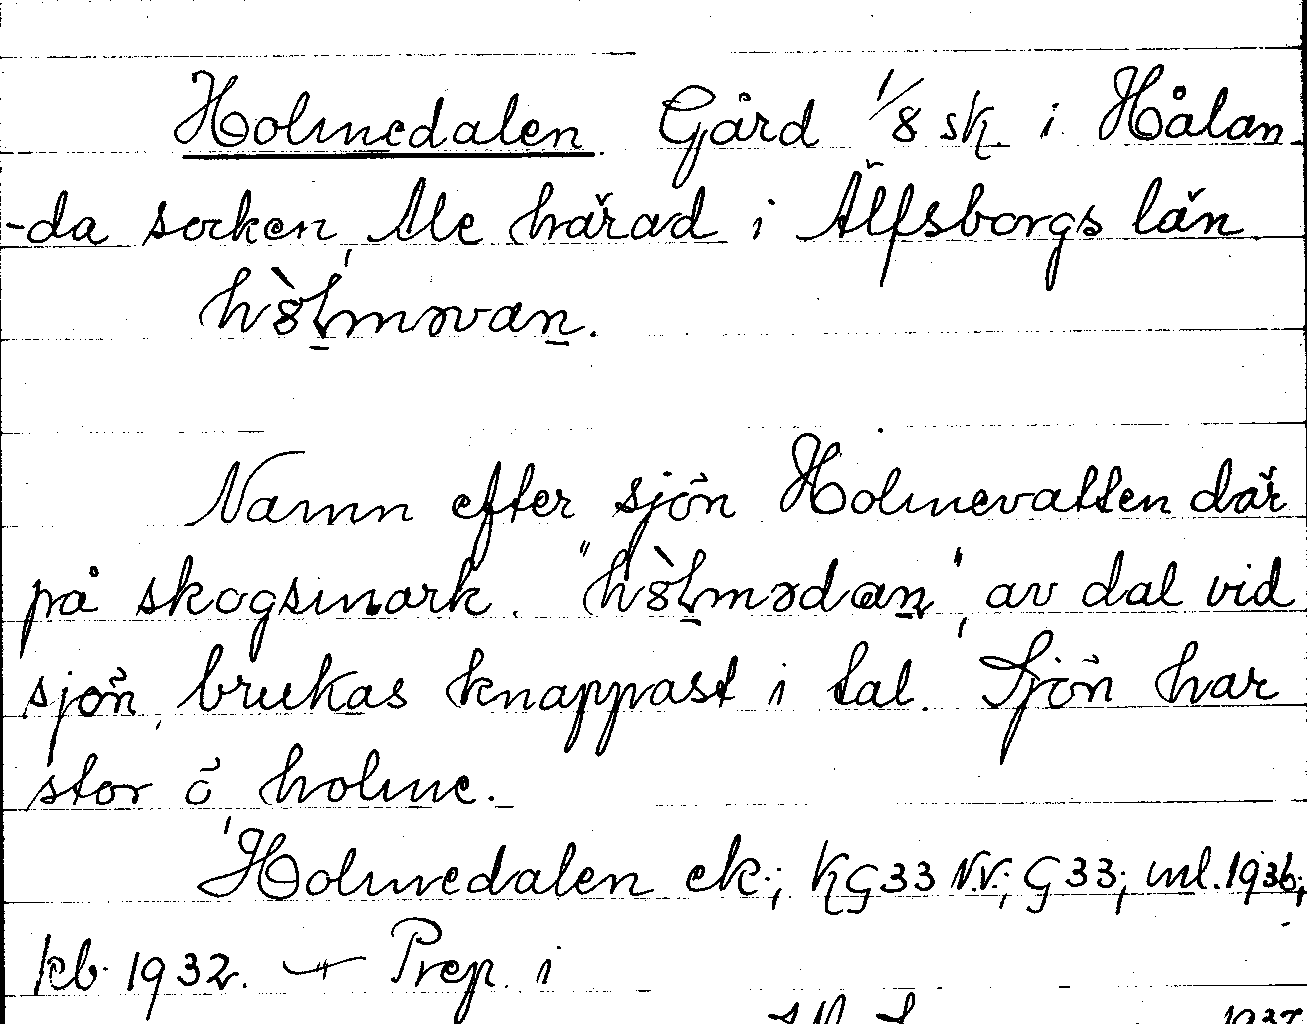 Holmedalen. Gård 1/8 sk. i Hålan
-da socken, Ale härad i Älfsborgs län.
hò̱lməvan̲.
Namn efter sjön Holmevatten där
på skogsmark. "hò̱lmədan̲", av dal vid
sjön, brukas knappast i tal. Sjön har
stor ö, holme.
Holmedalen ek.; KG33 N.V.; G33; ml. 1936;
kb. 1932. — Prep. i
1937